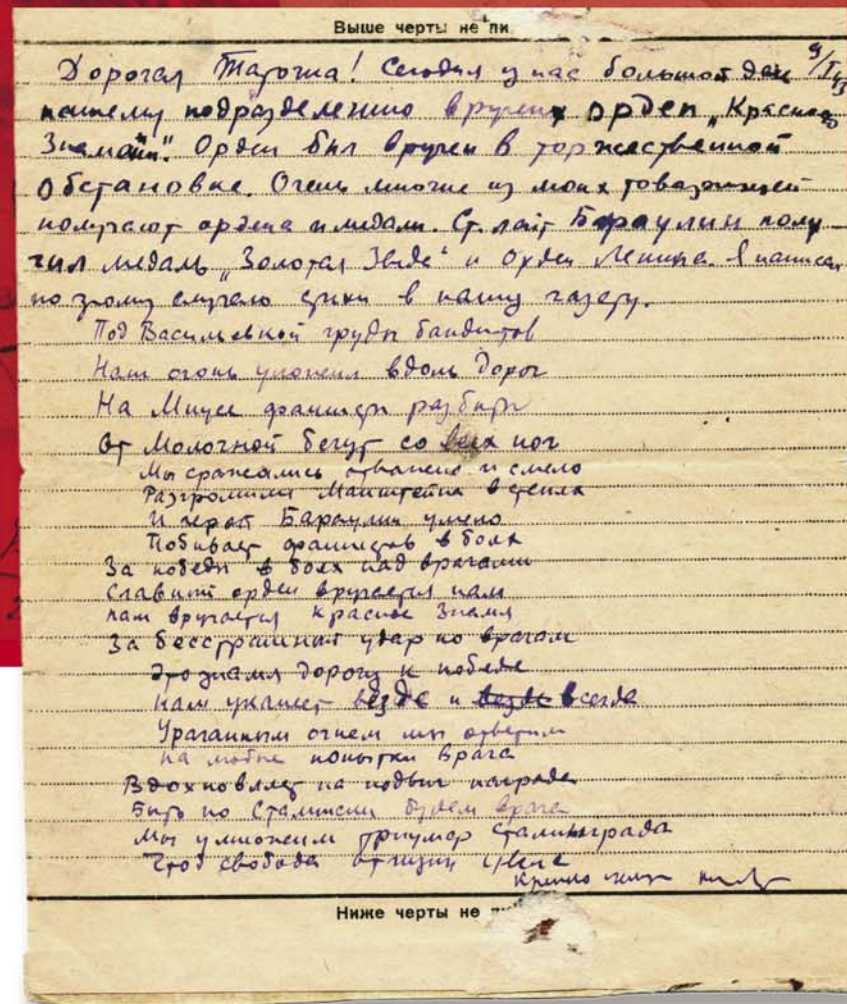 Выше черты не пи
Дорогая Тасочка! Сегодня у нас большой день
нашему подразделению вручен орден „Красного
Знамени". Орден был вручен в торжественной
обстановке. Очень многие из моих товарищей
получают ордена и медали. Ст. лейт Бараулин полу-
чил медаль „Золотая Звезда" и Орден Ленина. Я написал
по этому случаю стихи в нашу газету.
Под Васильевкой груды бандитов
Наш огонь уложил вдоль дорог
На Миусе фашисты разбиты
От Молочной бегут со всех ног
Мы сражались отважно и смело
Разгромили Манштейна в степях
И герой Бараулин умело
Побивает фашистов в боях
За победы в боях над врагами
Славный орден вручается нам
нам вручается Красное Знамя
За бесстрашный удар по врагам
Это знамя дорогу к победе
Нам укажет везде и всегда
Ураганным огнем мы ответим
на любые попытки врага
Вдохновляет на подвиг награда
Бить по Сталински будем врага
Мы умножим триумф Сталинграда
Чтоб свобода отчизны
Крепко жму
Ниже черты не